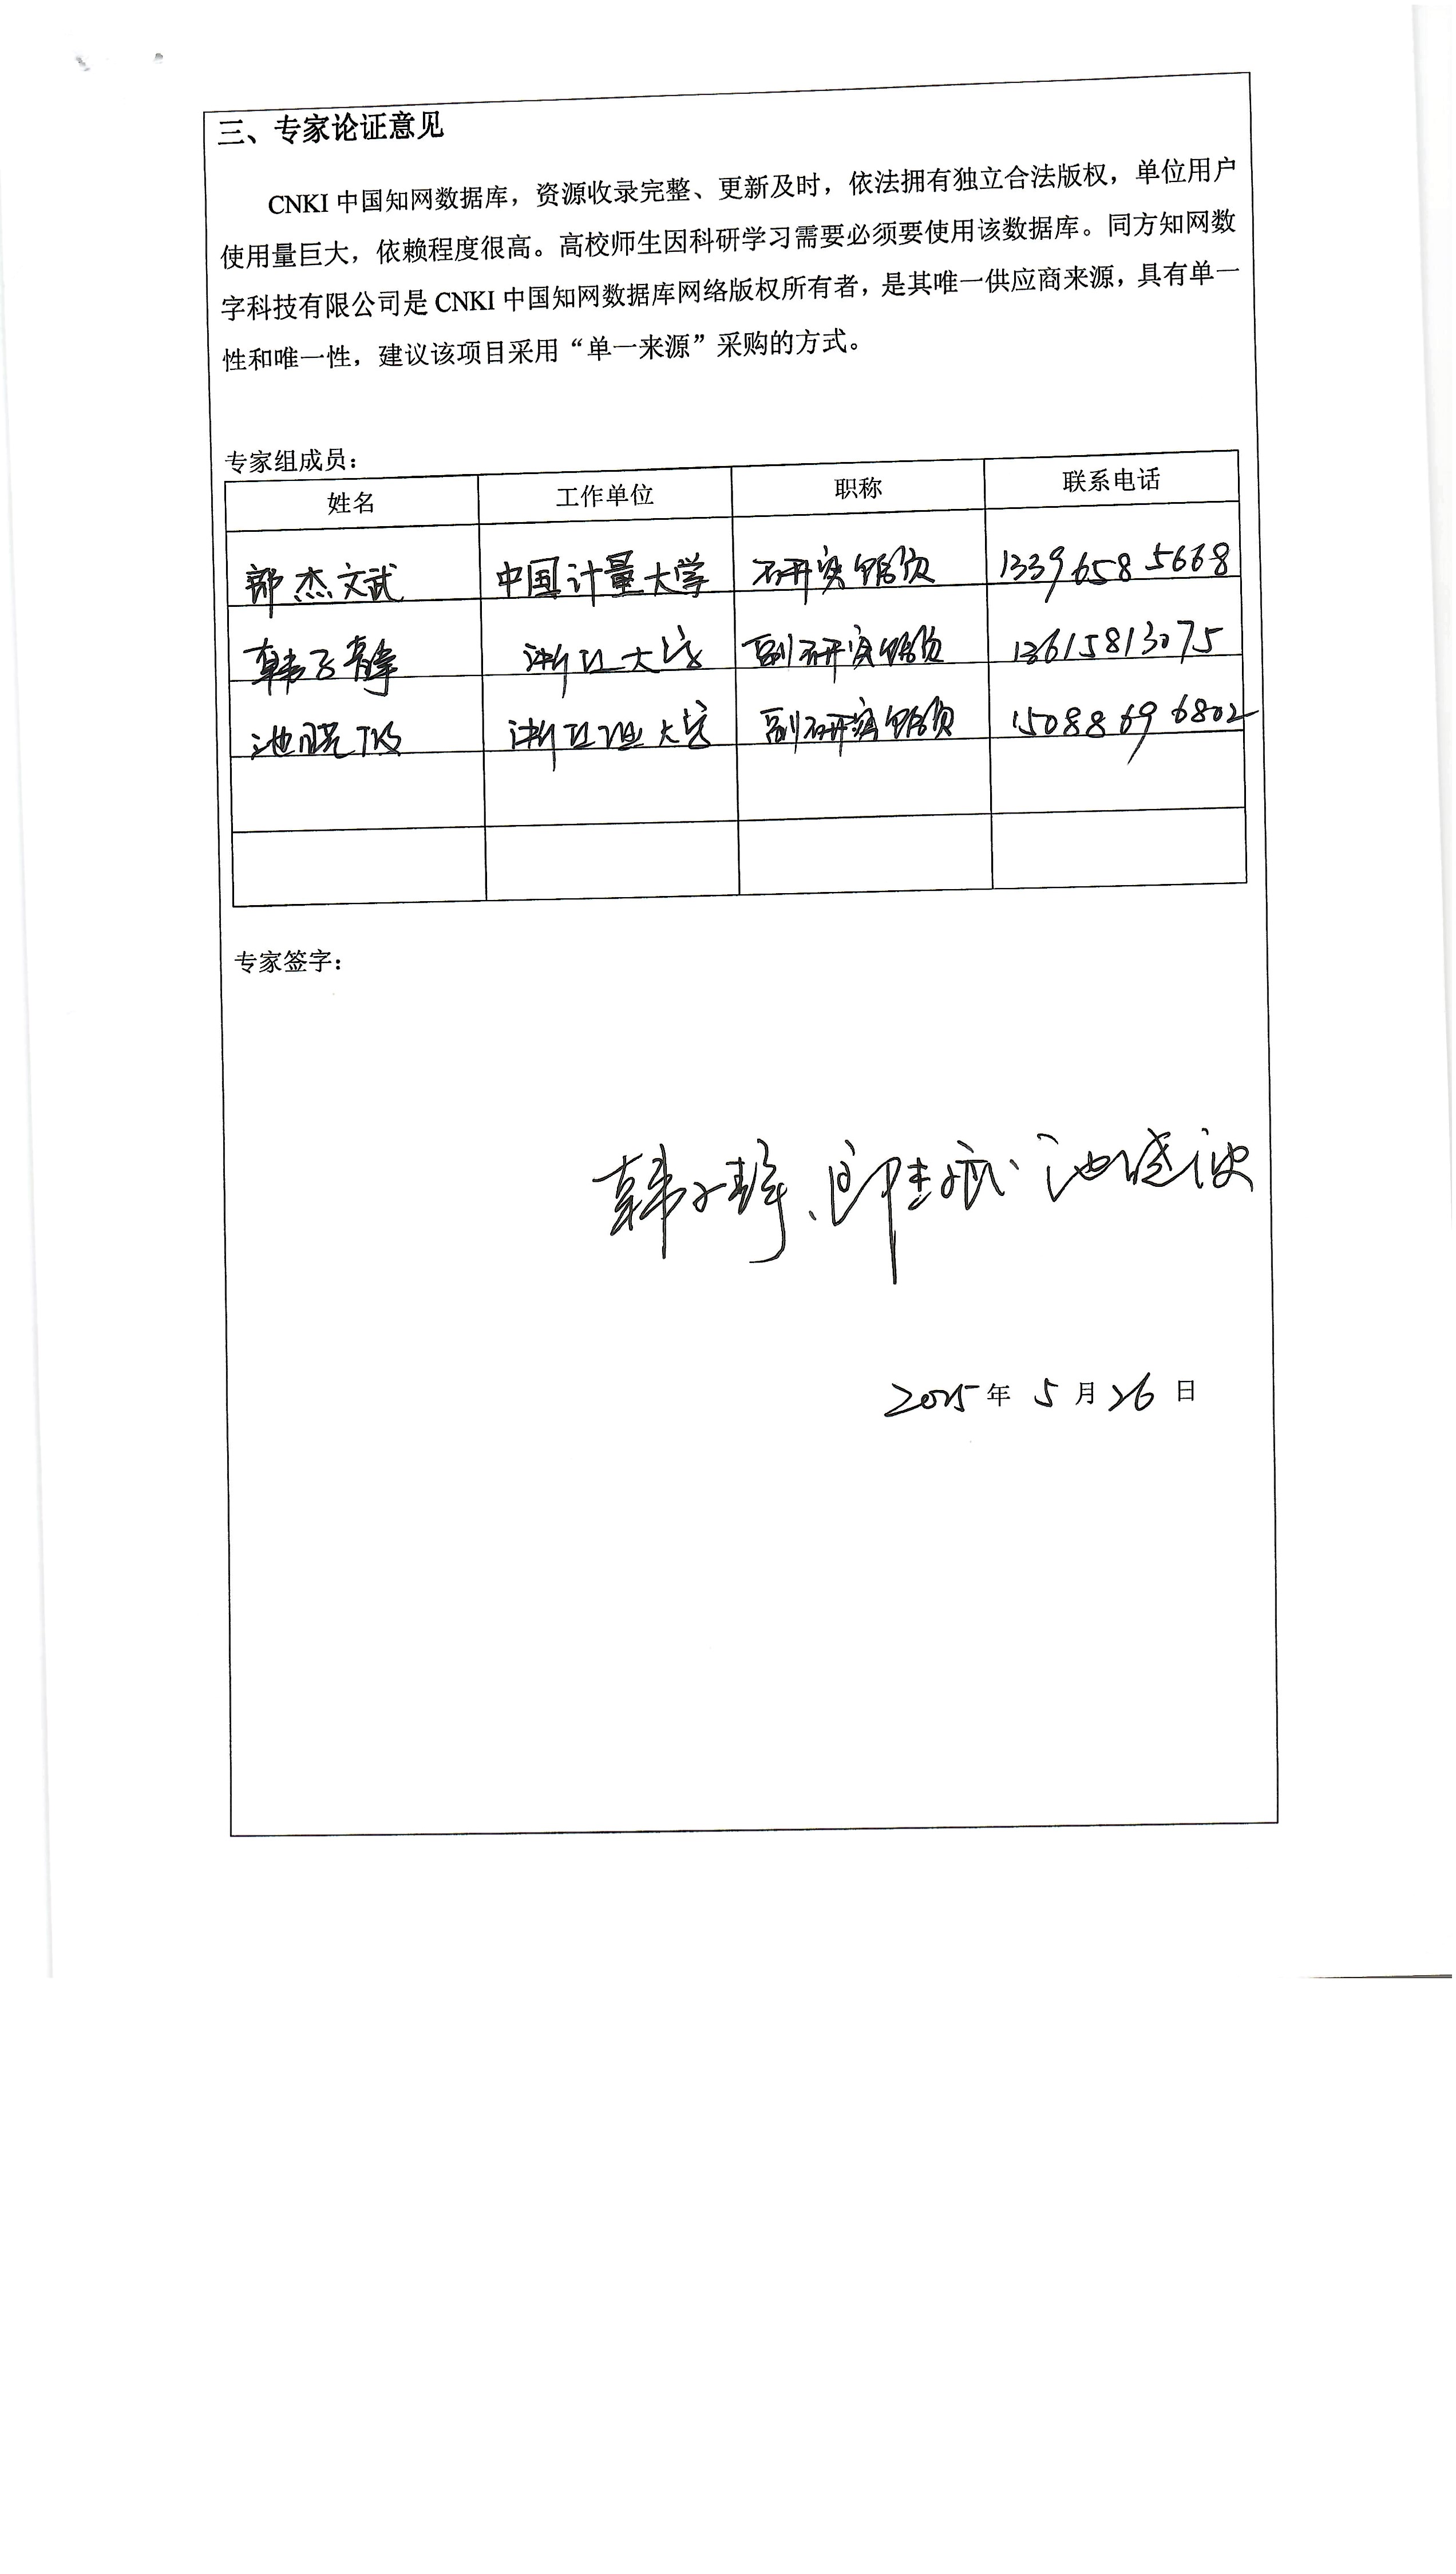 三、专家论证意见
CNKI 中国知网数据库，资源收录完整、更新及时，依法拥有独立合法版权，单位用户
使用量巨大，依赖程度很高。高校师生因科研学习需要必须要使用该数据库。同方知网数
字科技有限公司是 CNKI 中国知网数据库网络版权所有者，是其唯一供应商来源，具有单一
性和唯一性，建议该项目采用“单一来源”采购的方式。
专家组成员：
姓名 工作单位 职称 联系电话
中国计量大学 研究馆员 13396585668
韩子静 浙江大学 副研究馆员 13615813075
池晓波 浙江理工大学 副研究馆员 15088696802
专家签字：
韩子静、池晓波
2025 年 5 月 26 日